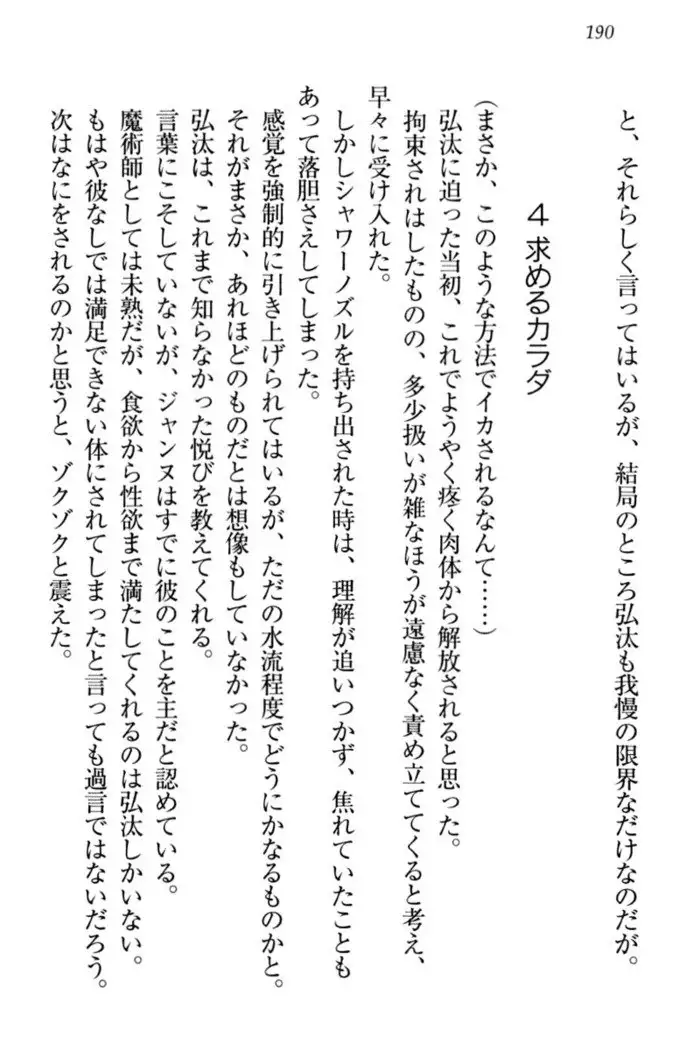 190
と、それらしく言ってはいるが、結局のところ弘汰も我慢の限界なだけなのだが。
4 求めるカラダ
(まさか、このような方法でイカされるなんて……)
弘汰に迫った当初、これでようやく疼く肉体から解放されると思った。
拘束されはしたものの、多少扱いが雑なほうが遠慮なく責め立ててくると考え、
早々に受け入れた。
しかしシャワーノズルを持ち出された時は、理解が追いつかず、焦れていたことも
あって落胆さえしてしまった。
感覚を強制的に引き上げられてはいるが、ただの水流程度でどうにかなるものかと。
それがまさか、あれほどのものだとは想像もしていなかった。
弘汰は、これまで知らなかった悦びを教えてくれる。
言葉にこそしていないが、ジャンヌはすでに彼のことを主だと認めている。
魔術師としては未熟だが、食欲から性欲まで満たしてくれるのは弘汰しかいない。
もはや彼なしでは満足できない体にされてしまったと言っても過言ではないだろう。
次はなにをされるのかと思うと、ゾクゾクと震えた。